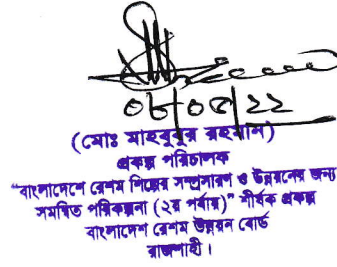 ০৮/০৫/২২
(মোঃ মাহবুবুর রহমান)
প্রকল্প পরিচালক
"বাংলাদেশে রেশম শিল্পের সম্প্রসারণ ও উন্নয়নের জন্য
সমন্বিত পরিকল্পনা (২য় পর্যায়)" শীর্ষক প্রকল্প
বাংলাদেশ রেশম উন্নয়ন বোর্ড
রাজশাহী।